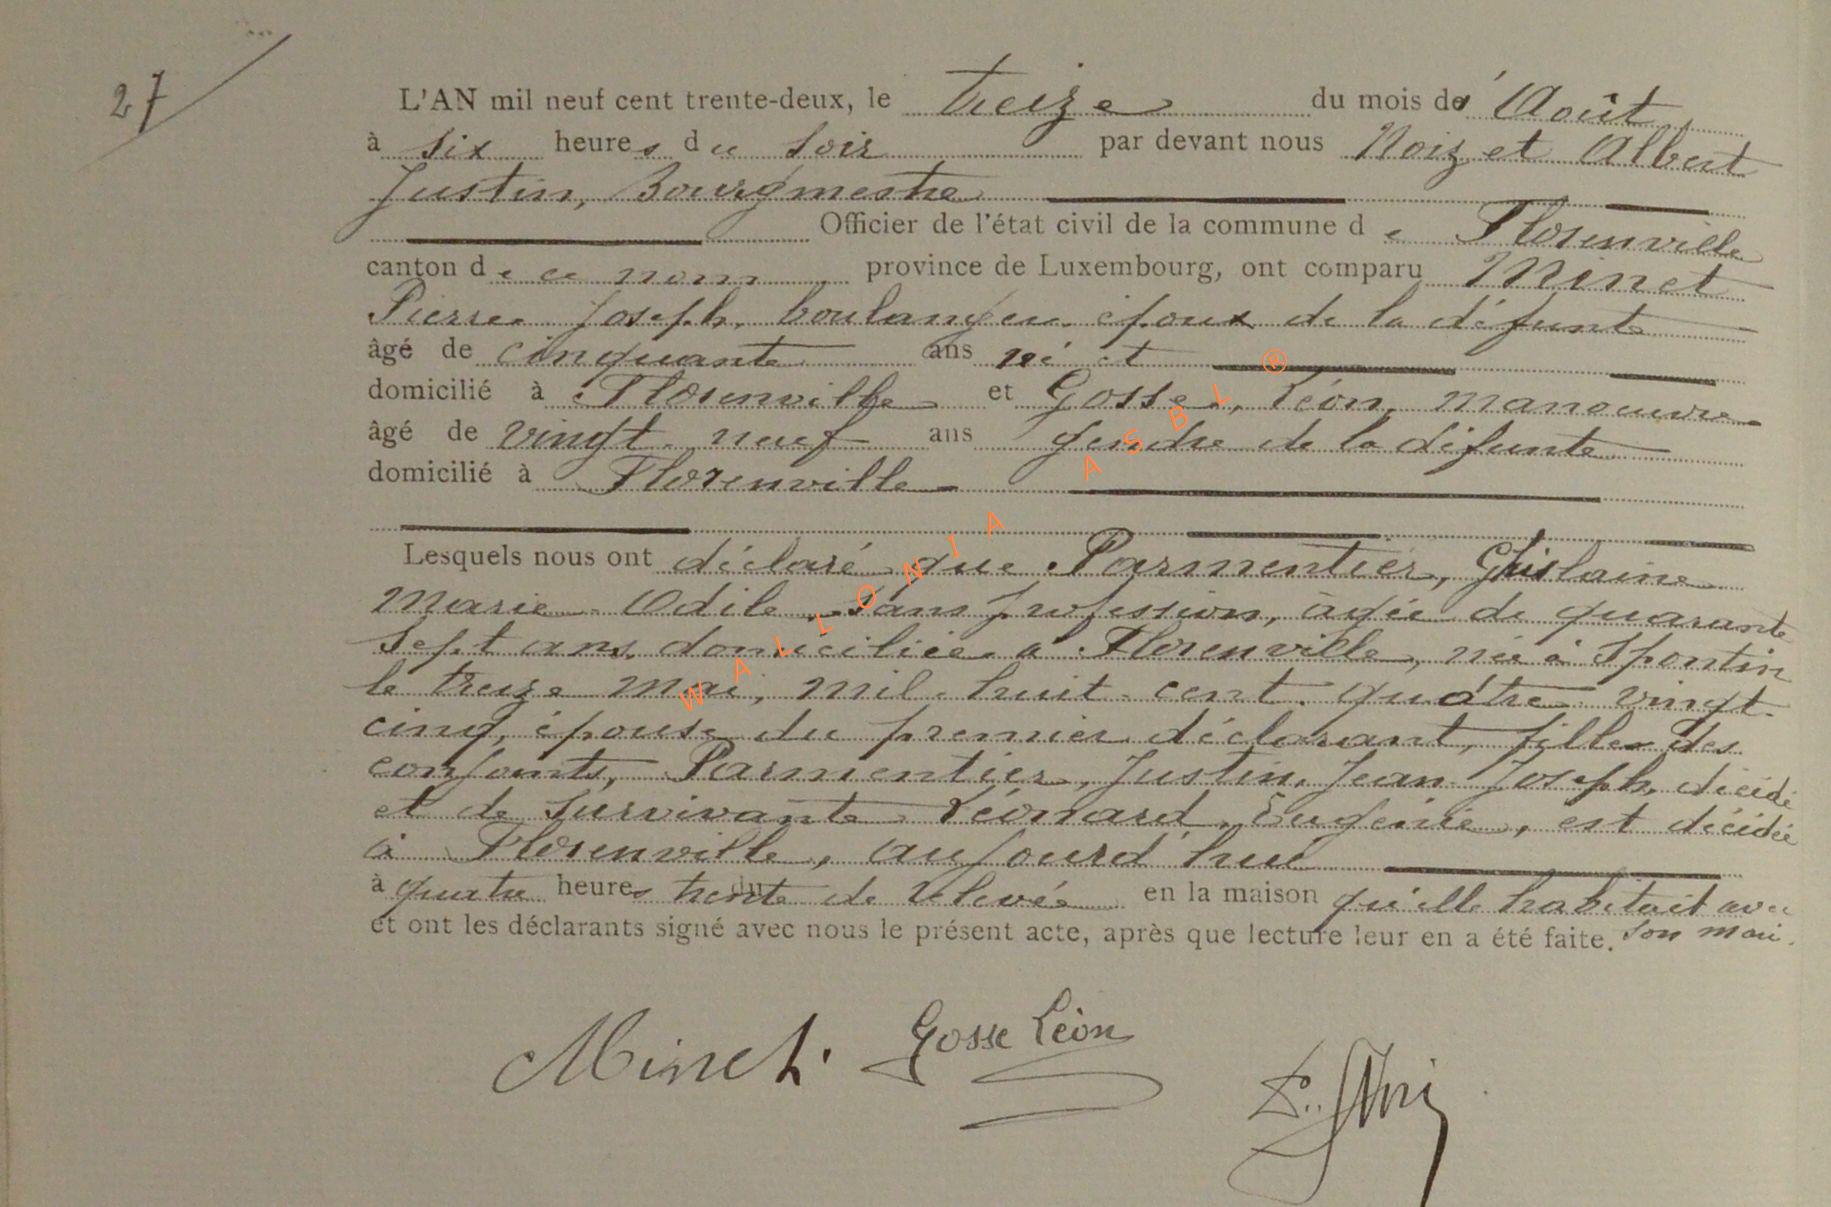 27
L'AN mil neuf cent trente-deux, le treize du mois d'Août
à six heures du soir par devant nous Noizet Albert
Justin, Bourgmestre
Officier de l'état civil de la commune de Florenville
canton de ce nom province de Luxembourg, ont comparu Minet
Pierre Joseph, boulanger époux de la défunte
âgé de cinquante ans né et
domicilié à Florenville et Gosse, Léon, manoeuvre
âgé de vingt-neuf ans gendre de la défunte
domicilié à Florenville
Lesquels nous ont déclaré que Parmentier, Ghislaine
Marie-Odile, sans profession, âgée de quarante
sept ans, domiciliée à Florenville, née à Spontin
le treize mai, mil-huit-cent-quatre-vingt-
cinq, épouse du premier déclarant, fille des
conjoints, Parmentier, Justin, Jean-Joseph, décédé
et de survivante Léonard, Eugénie, est décédée
à Florenville, aujourd'hui
à quatre heures trente de relevée en la maison qu'elle habitait avec
son mari.
et ont les déclarants signé avec nous le présent acte, après que lecture leur en a été faite.
WALLONIA ASBL ®
Minet. Gosse Léon